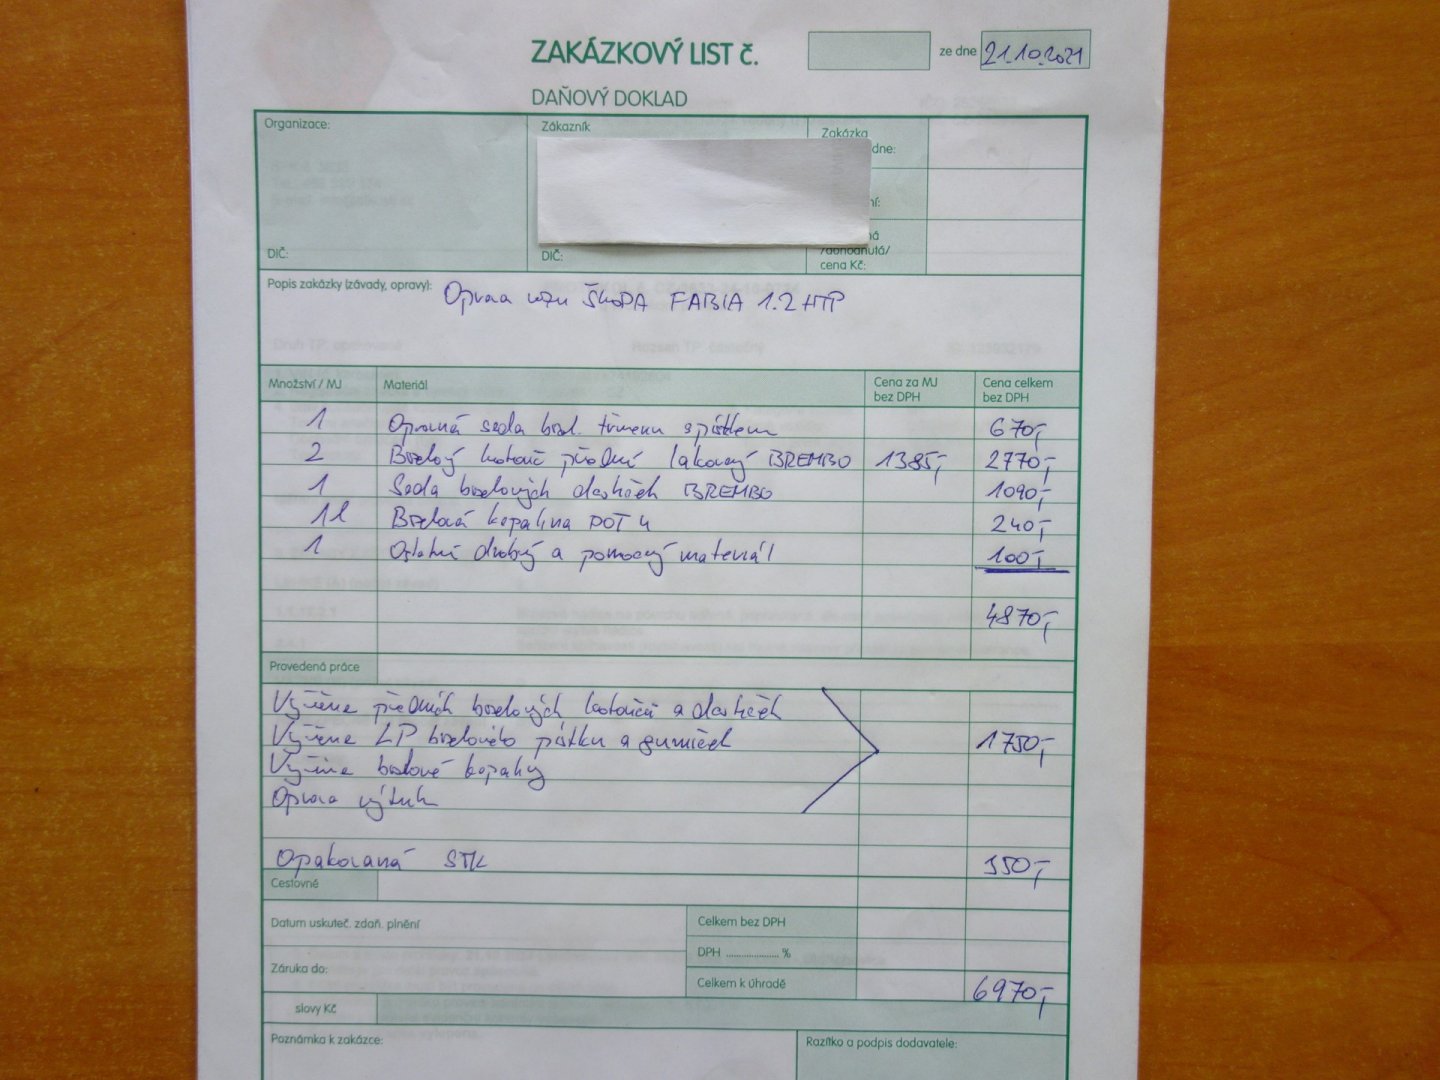 ZAKÁZKOVÝ LIST č.
ze dne 21.10.2021
DAŇOVÝ DOKLAD
Organizace:
Zákazník
Zakázka
dne:
ní:
ná
/dohodnutá/
cena Kč:
DIČ:
DIČ:
Popis zakázky (závady, opravy): Oprava vozu ŠKODA FABIA 1.2 HTP
Množství / MJ Materiál Cena za MJ bez DPH Cena celkem bez DPH
1 Opravná sada brzd. třmenu s pístkem 670,-
2 Brzdový kotouč přední lakovaný BREMBO 1385,- 2770,-
1 Sada brzdových destiček BREMBO 1090,-
1l Brzdová kapalina DOT 4 240,-
1 Ostatní drobný a pomocný materiál 100,-
4870,-
Provedená práce
Výměna předních brzdových kotoučů a destiček
Výměna LP brzdového pístku a gumiček 1750,-
Výměna brzdové kapaliny
Oprava výtuk
Opakovaná STK 350,-
Cestovné
Datum uskuteč. zdaň. plnění
Celkem bez DPH
DPH .................... %
Záruka do:
Celkem k úhradě 6970,-
slovy Kč
Poznámka k zakázce:
Razítko a podpis dodavatele: